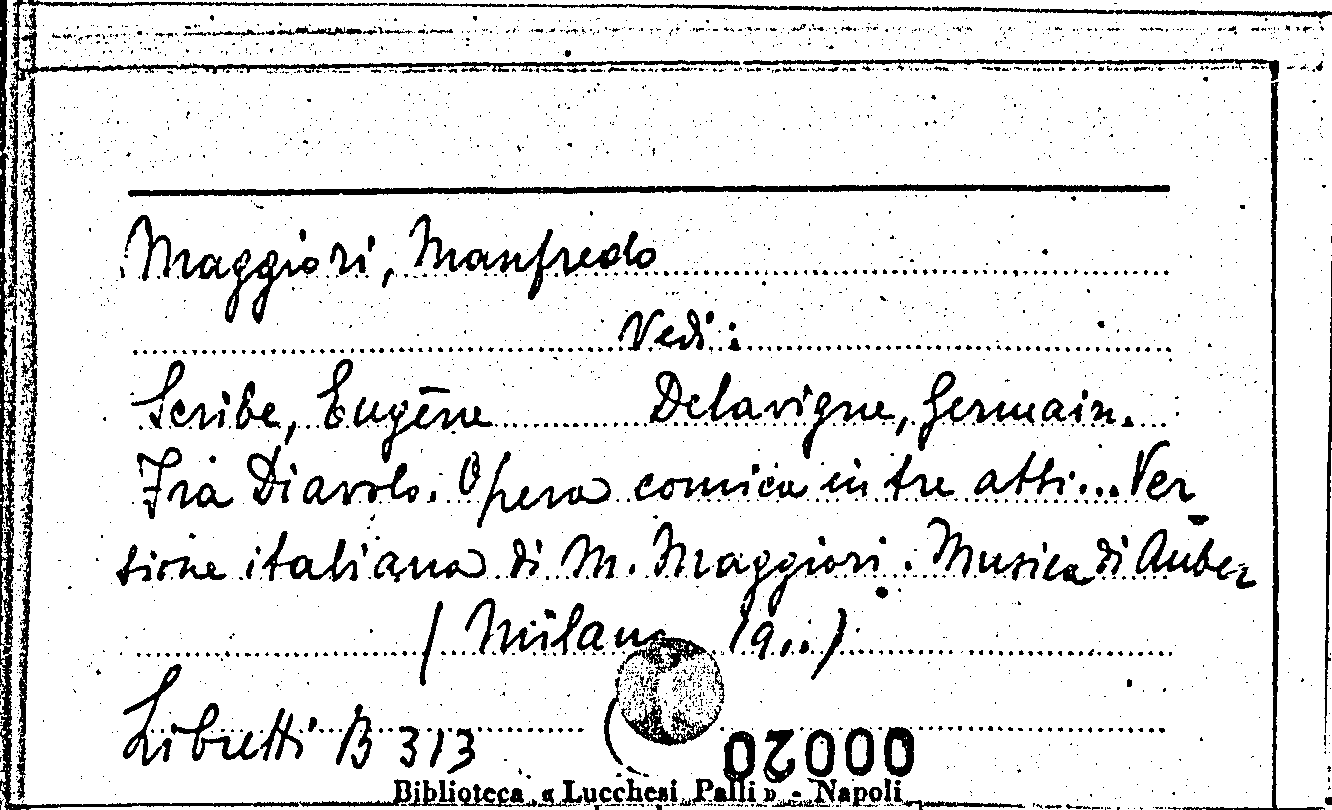 Maggiori, Manfredo
Vedi:
Scribe, Eugène Delavigne, Germain.
Fra Diavolo. Opera comica in tre atti... Ver
sione italiana di M. Maggiori. Musica di Auber
(Milano 19..)
Libretti B 313
00020
Biblioteca « Lucchesi Palli » - Napoli